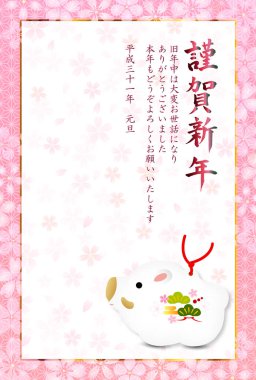 謹賀新年
旧年中は大変お世話になり
ありがとうございました
本年もどうぞよろしくお願いいたします
平成三十一年 元旦